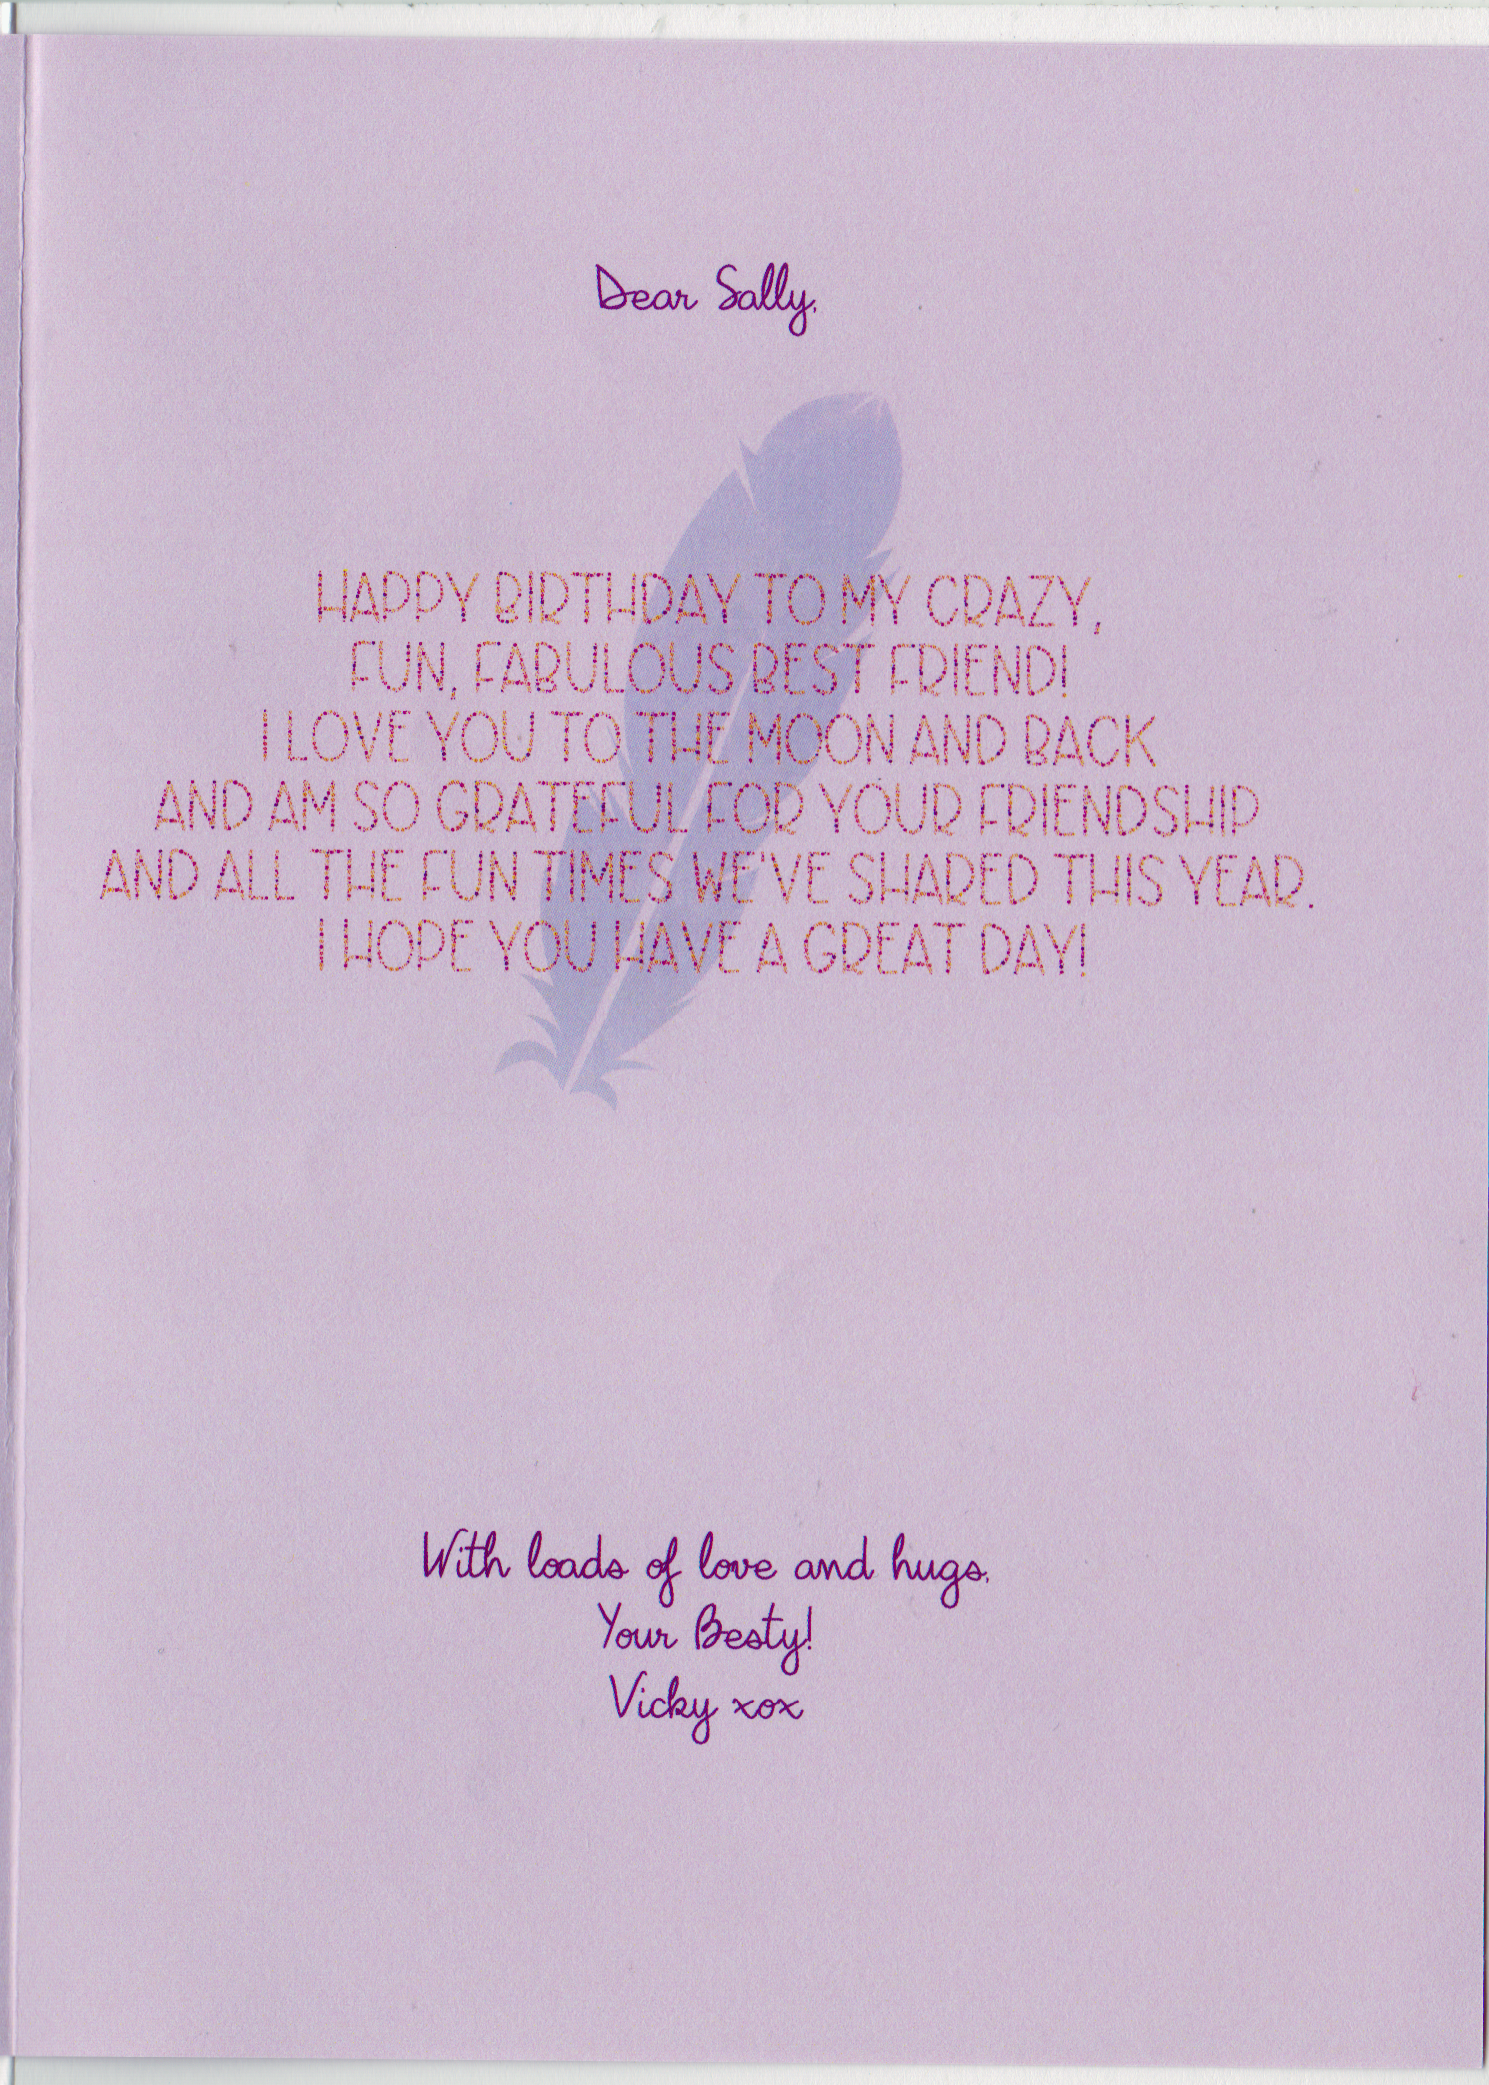 Dear Sally,
HAPPY BIRTHDAY TO MY CRAZY,
FUN, FABULOUS BEST FRIEND!
I LOVE YOU TO THE MOON AND BACK
AND AM SO GRATEFUL FOR YOUR FRIENDSHIP
AND ALL THE FUN TIMES WE'VE SHARED THIS YEAR.
I HOPE YOU HAVE A GREAT DAY!
With loads of love and hugs,
Your Besty!
Vicky xox